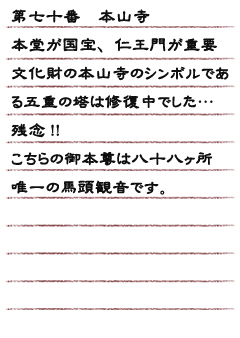 第七十番　本山寺
本堂が国宝、仁王門が重要
文化財の本山寺のシンボルであ
る五重の塔は修復中でした…
残念!!
こちらの御本尊は八十八ヶ所
唯一の馬頭観音です。